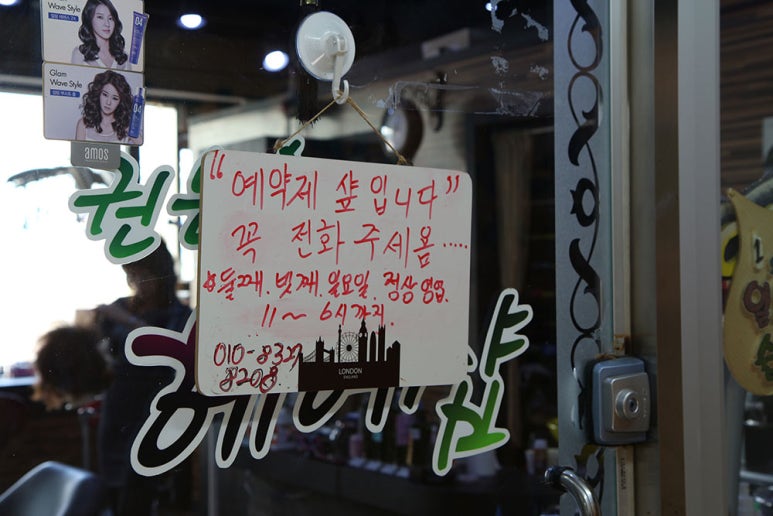 Wave Style
04
Glam
Wave Style
04
amos
"예약제 샾입니다"
꼭 전화 주세욤.....
☆둘째. 넷째. 일요일. 정상영업.
11~6시까지.
010-8327
8208
LONDON
ENGLAND
헤어샵